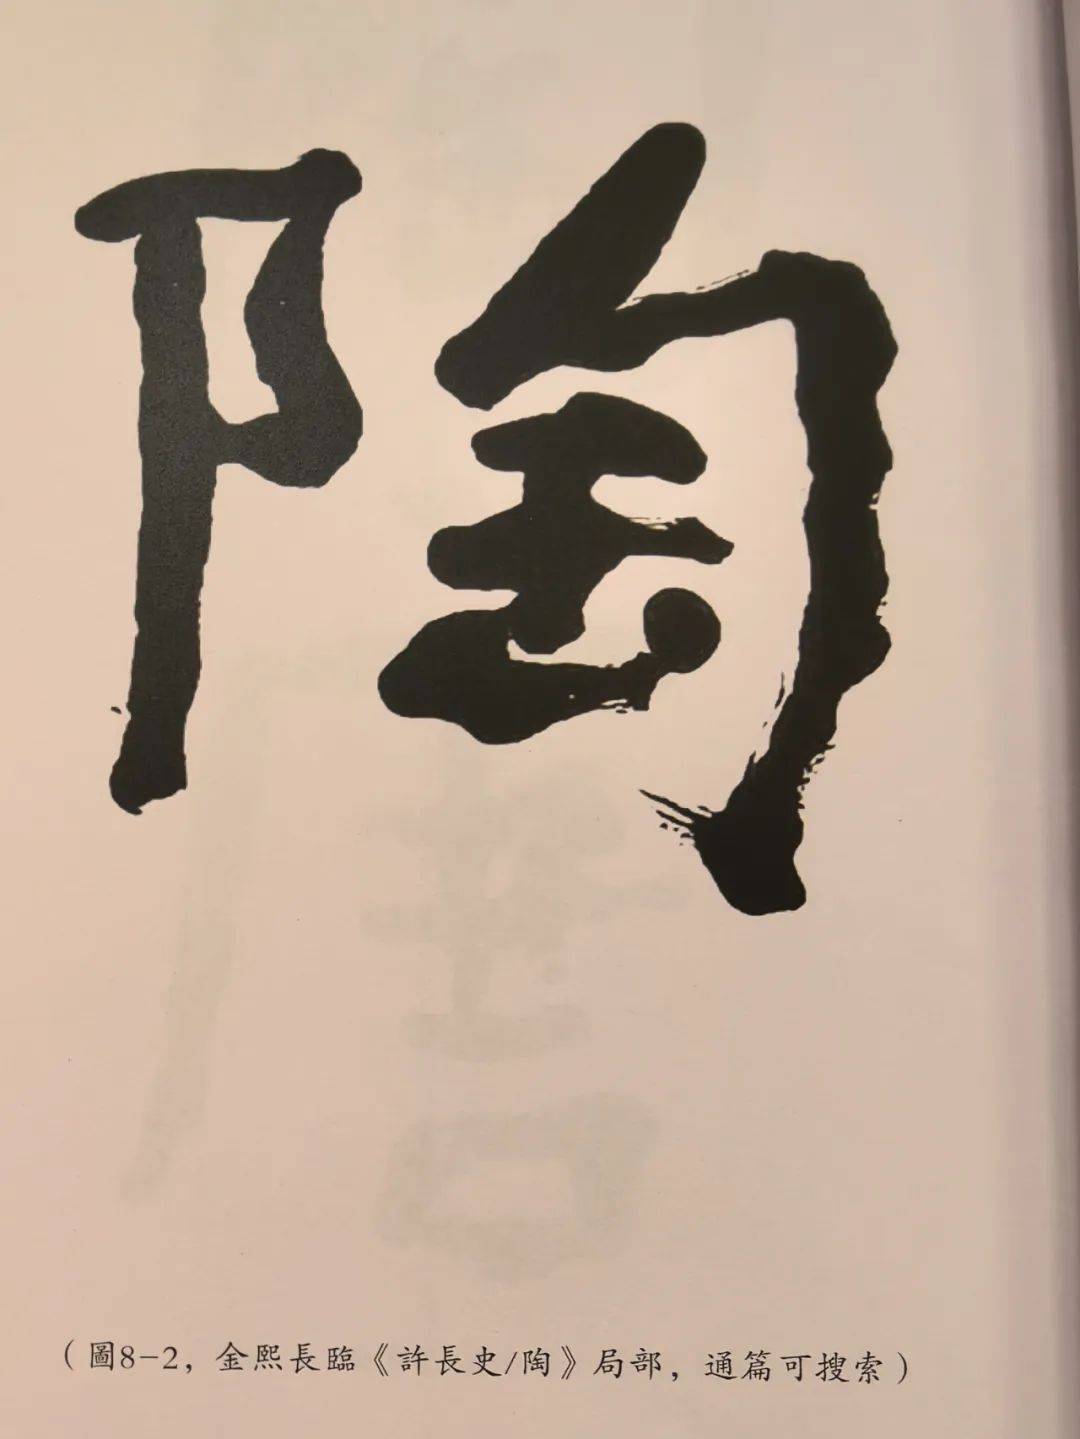 陶
（圖8-2，金熙長臨《許長史/陶》局部，通篇可搜索）